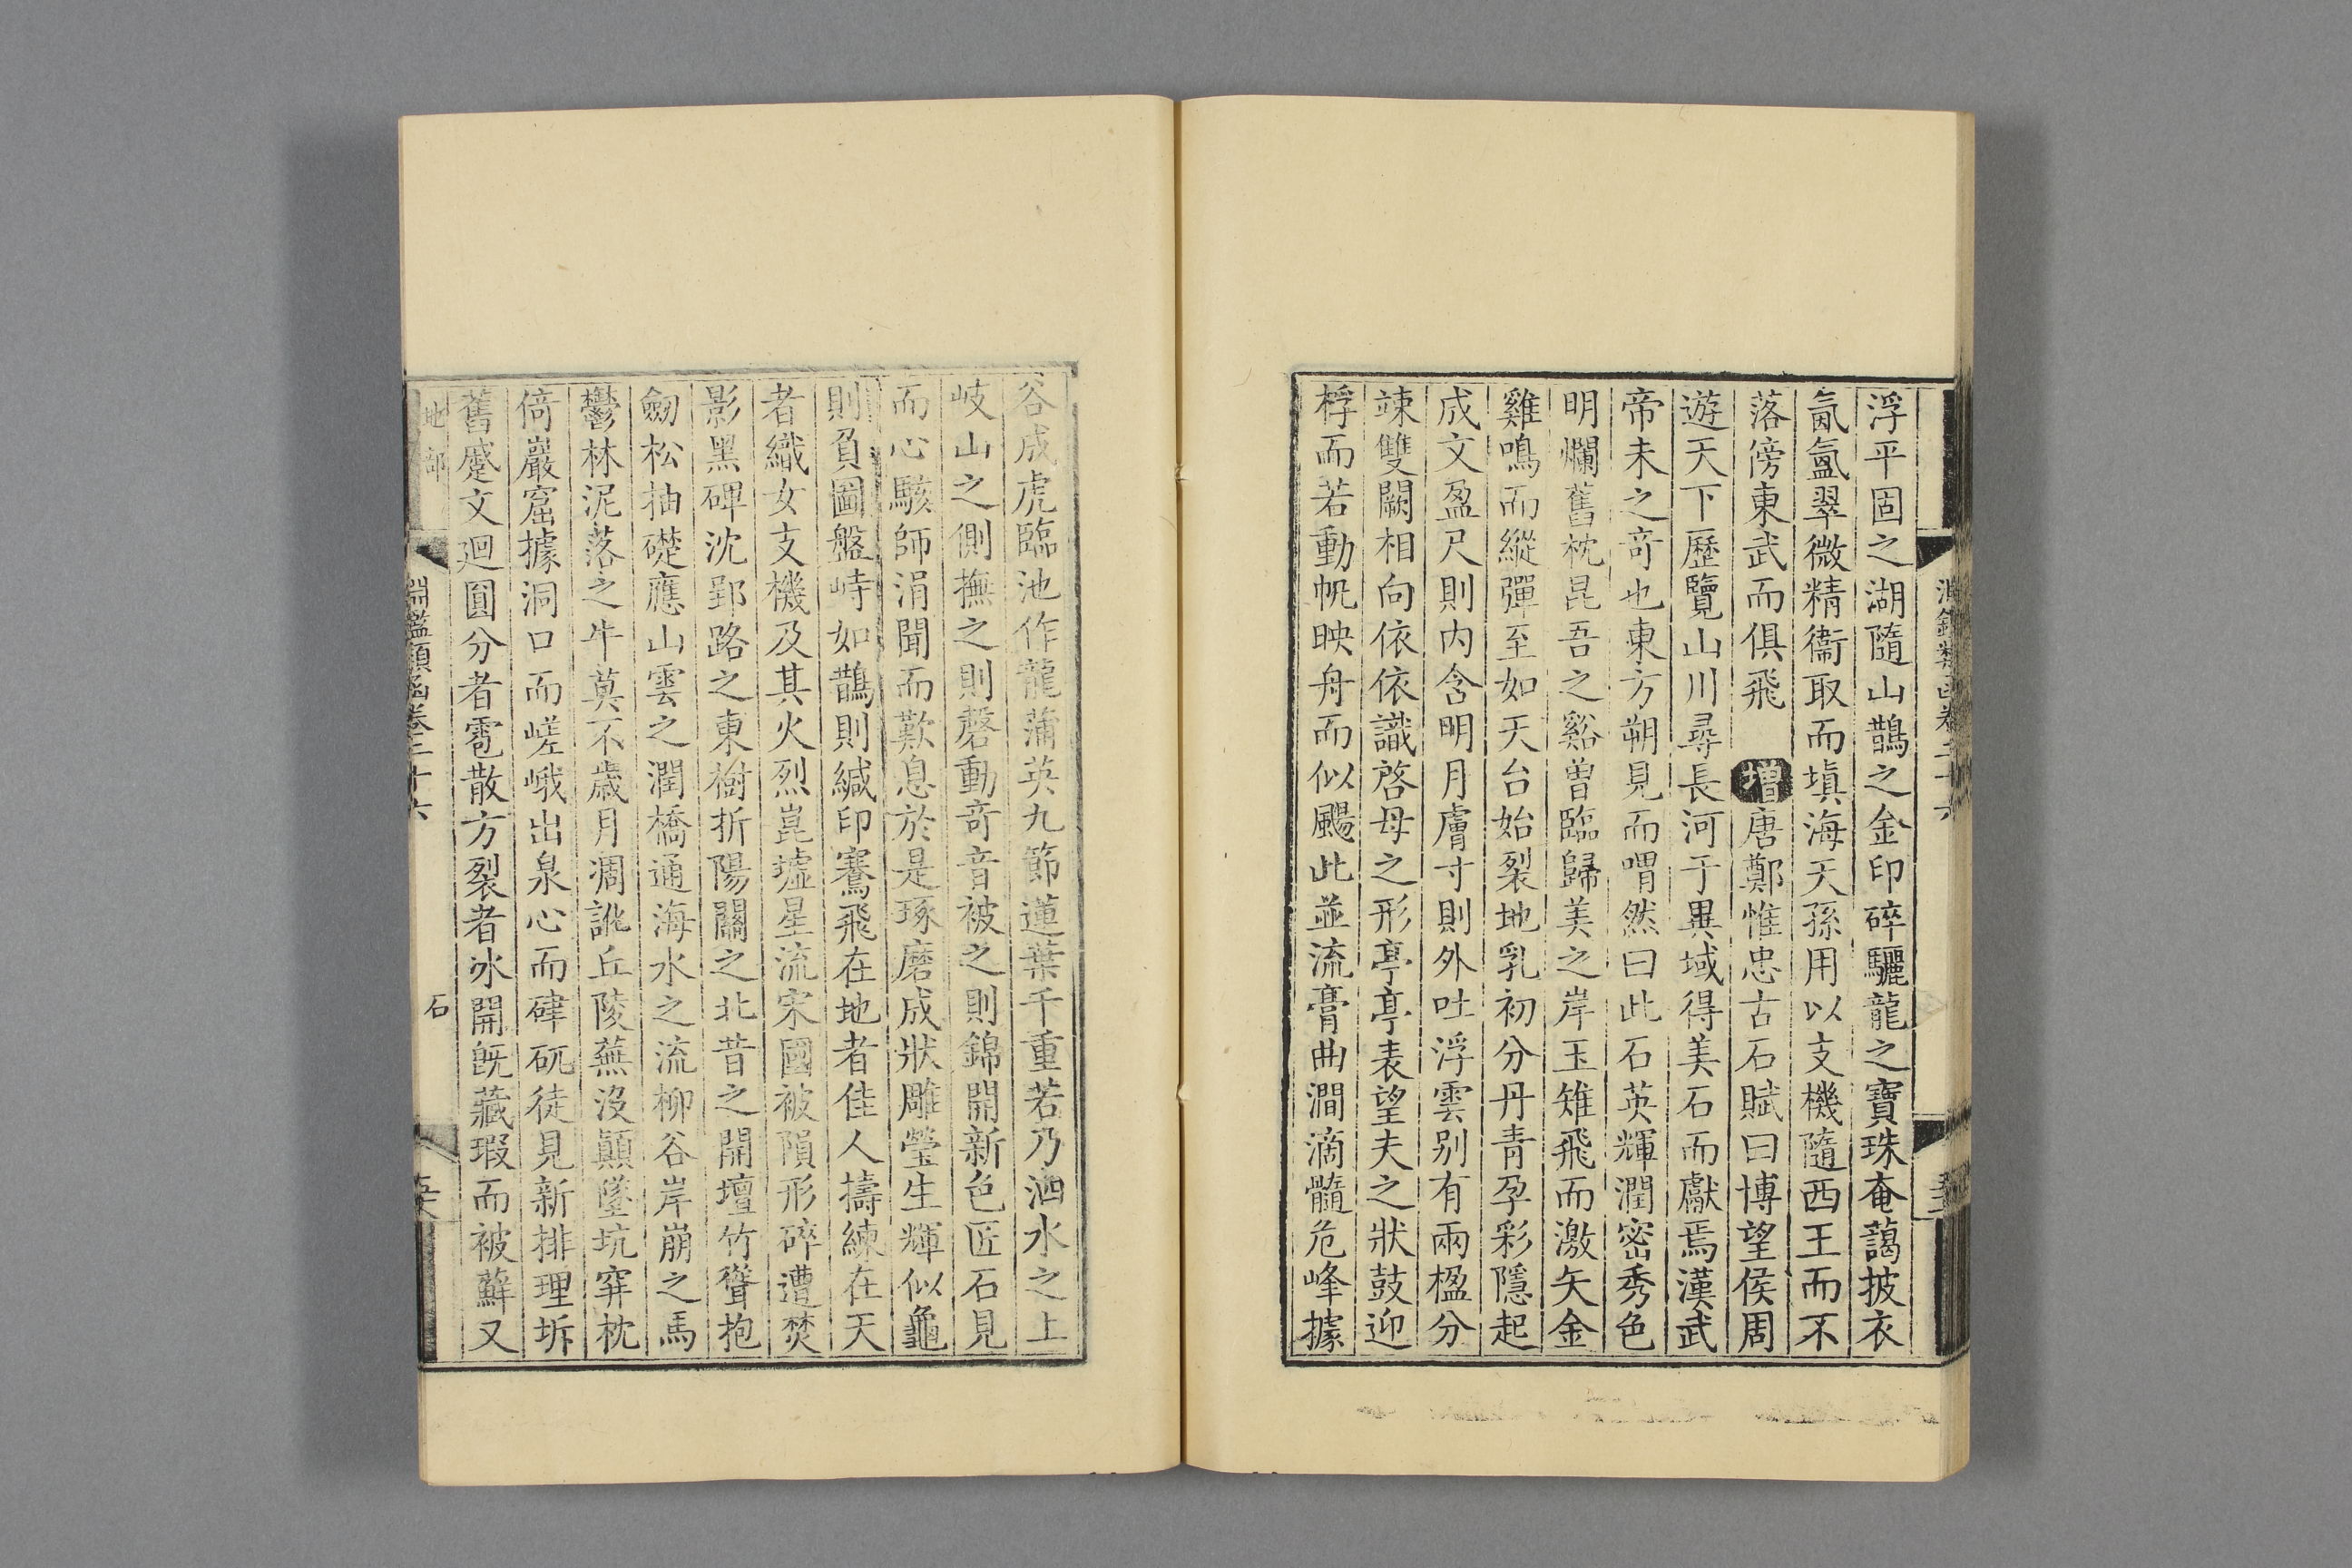 浮平固之湖隨山鵲之金印碎驪龍之寶珠奄藹披衣
氤氳翠微精衞取而塡海天孫用以支機隨西王而不
落傍東武而俱飛 增唐鄭惟忠古石賦曰博望侯周
遊天下歷覽山川尋長河于異域得美石而獻焉漢武
帝未之奇也東方朔見而喟然曰此石英輝潤密秀色
明爛舊枕昆吾之谿曾臨歸美之岸玉雉飛而激矢金
雞鳴而縱彈至如天台始裂地乳初分丹靑孕彩隱起
成文盈尺則內含明月膚寸則外吐浮雲别有兩楹分
竦雙闕相向依依識啓母之形亭亭表望夫之狀鼓迎
桴而若動帆映舟而似颺此並流膏曲澗滴髓危峰據
谷成虎臨池作龍蒲英九節蓮葉千重若乃泗水之上
岐山之側撫之則磬動奇音被之則錦開新色匠石見
而心駭師涓聞而歎息於是琢磨成狀雕瑩生輝似龜
則負圖盤峙如鵲則緘印騫飛在地者佳人擣練在天
者織女支機及其火烈崑墟星流宋國被隕形碎遭焚
影黑碑沈郢路之東樹折陽關之北昔之開壇竹聳抱
劒松抽礎應山雲之潤橋通海水之流柳谷岸崩之馬
鬱林泥落之牛莫不歲月凋訛丘陵蕪没顚墬坑穽枕
倚巖窟據洞口而嵯峨出泉心而硉矹徒見新排理坼
舊蹙文廻圓分者雹散方裂者冰開旣藏瑕而被蘚又
地部
淵鑑類函卷二十六
石